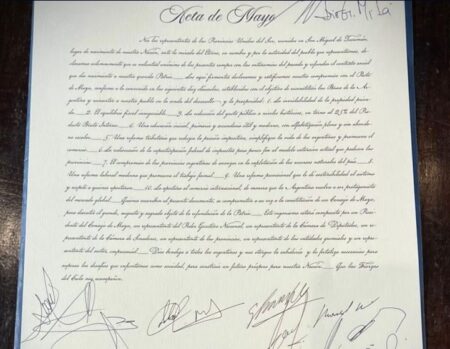 Acta de Mayo
Nos los representantes de las Provincias Unidas del Sur, reunidos en San Miguel de Tucumán,
lugar de nacimiento de nuestra Nación, ante la mirada del Eterno, en nombre y por la autoridad del pueblo que representamos, de-
claramos solemnemente que es voluntad unánime de los presentes romper con las antinomias del pasado y refundar el contrato social
que dio nacimiento a nuestra querida Patria. Los aquí firmantes declaramos y ratificamos nuestro compromiso con el Pacto
de Mayo, conforme a lo convenido en las siguientes diez cláusulas, establecidas con el objetivo de reconstruir las Bases de la Ar-
gentina y reinsertar a nuestro pueblo en la senda del desarrollo y la prosperidad: 1. La inviolabilidad de la propiedad priva-
da. 2. El equilibrio fiscal innegociable. 3. La reducción del gasto público a niveles históricos, en torno al 25% del Pro-
ducto Bruto Interno. 4. Una educación inicial, primaria y secundaria útil y moderna, con alfabetización plena y sin abando-
no escolar. 5. Una reforma tributaria que reduzca la presión impositiva, simplifique la vida de los argentinos y promueva el
comercio. 6. La rediscusión de la coparticipación federal de impuestos para poner fin al modelo extorsivo actual que padecen las
provincias. 7. El compromiso de las provincias argentinas de avanzar en la explotación de los recursos naturales del país. 8.
Una reforma laboral moderna que promueva el trabajo formal. 9. Una reforma previsional que le dé sustentabilidad al sistema
y respete a quienes aportaron. 10. La apertura al comercio internacional, de manera que la Argentina vuelva a ser protagonista
del mercado global. Quienes suscriben el presente documento, se comprometen a su vez a la constitución de un Consejo de Mayo,
para discutir el grande, augusto y sagrado objeto de la refundación de la Patria. Este organismo estará compuesto por un Presi-
dente del Consejo de Mayo, un representante del Poder Ejecutivo Nacional, un representante de la Cámara de Diputados, un re-
presentante de la Cámara de Senadores, un representante de las provincias, un representante de las entidades gremiales y un repre-
sentante del sector empresarial. Dios bendiga a todos los argentinos y nos otorgue la sabiduría y la fortaleza necesarias para
superar los desafíos que enfrentamos como sociedad, para construir un futuro próspero para nuestra Nación. Que las Fuerzas
del Cielo nos acompañen.